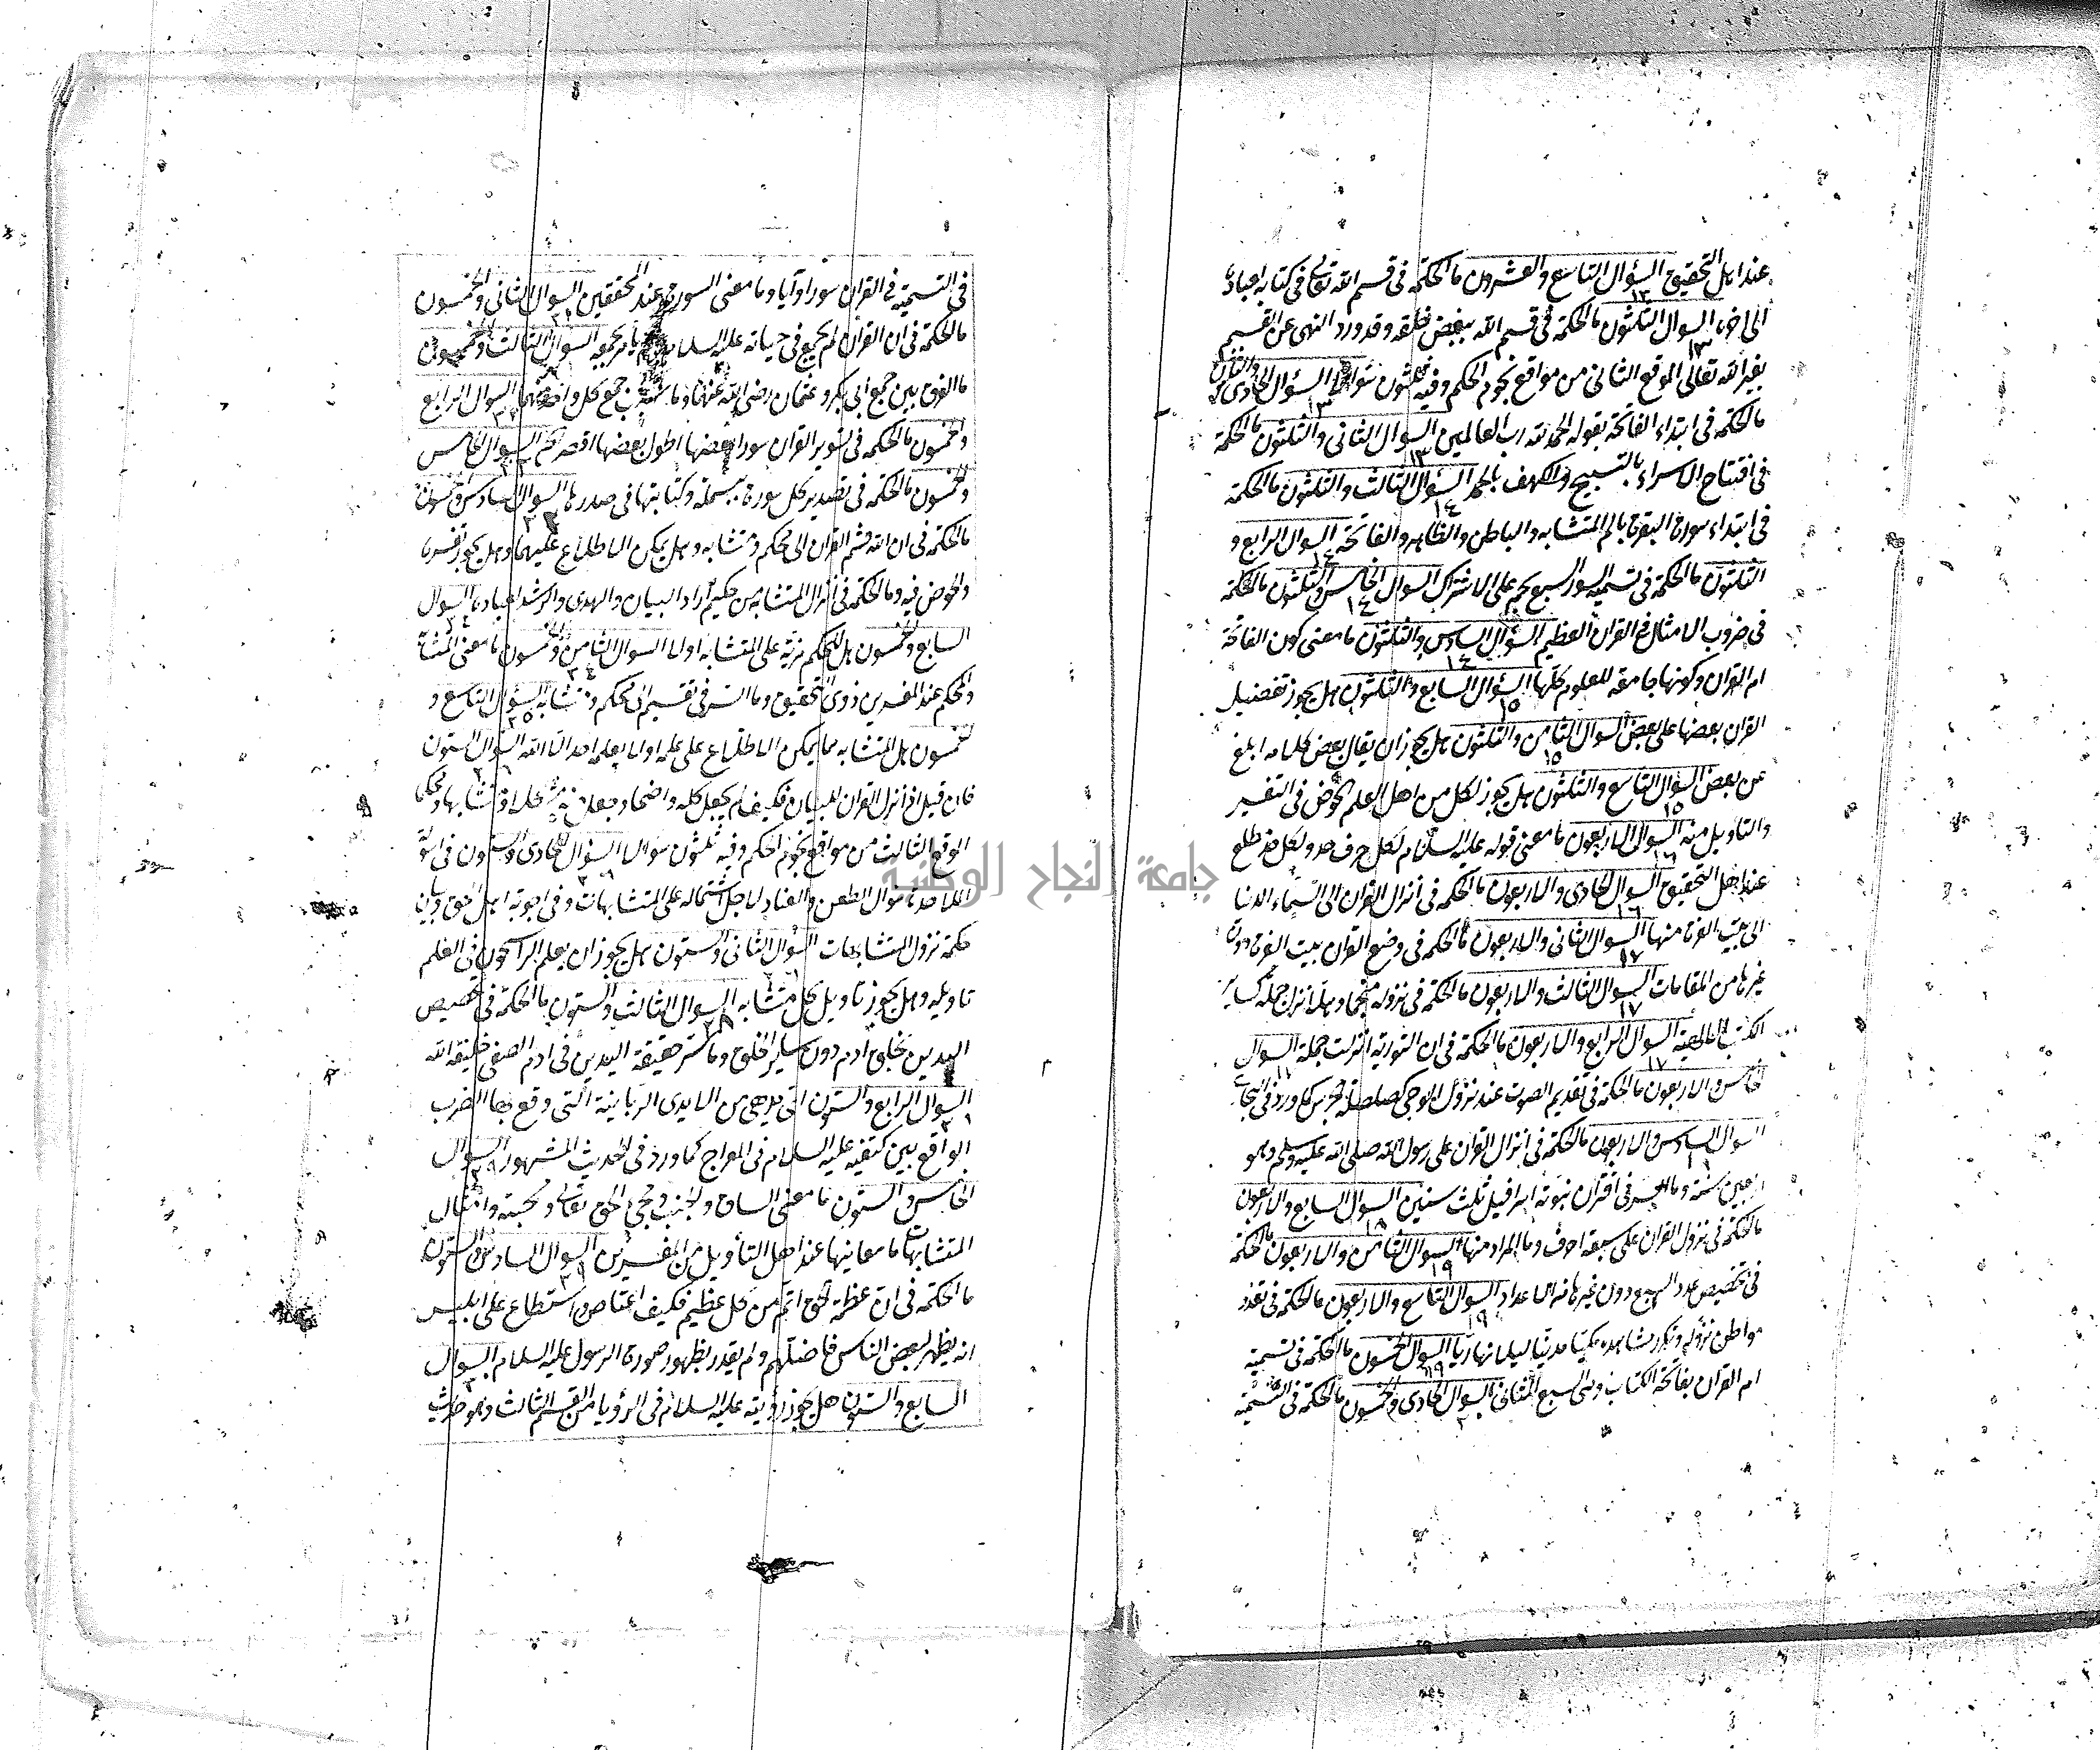 عند اهل التحقيق السؤال التاسع والعشرون ما الحكمة فى قسم الله تعالى فى كتابه اعباء
الى اخره السوال الثلثون ما الحكمة فى قسم الله ببعض خلقه وقد ورد النهى عن القسم
بغير الله تعالى الموقع الثانى من مواقع نجوم الحكم وفيه ثلثون سوالا السؤال الحادى والثلثون
ما الحكمة فى ابتداء الفاتحة بقوله الحمد لله رب العالمين السوال الثانى والثلثون ما الحكمة
فى افتتاح الاسراء بالتسبيح والكهف بالحمد السؤال الثالث والثلثون ما الحكمة
فى ابتداء سورة البقرة بالم المتشابه والباطن والظاهر والفاتحة السوال الرابع و
الثلثون ما الحكمة فى تسمية السور السبع حم على الاشتراك السوال الخامس والثلثون ما الحكمة
فى ضروب الامثال فى القران العظيم السؤال السادس والثلثون ما معنى كون الفاتحة
ام القران وكونها جامعة للعلوم كلها السؤال السابع والثلثون هل يجوز تفضيل
القران بعضها على بعض السوال الثامن والثلثون هل يجوز ان يقال بعض كلامه ابلغ
من بعض السؤال التاسع والثلثون هل يجوز لكل من اهل العلم الخوض فى التفسير
والتاويل منه السوال الاربعون ما معنى قوله عليه السلام لكل حرف حد ولكل حد مطلع
عند اهل التحقيق السوال الحادى والاربعون ما الحكمة فى انزال القران الى السماء الدنيا
الى بيت العزة منها السوال الثانى والاربعون ما الحكمة فى وضع القران بيت العزة دون
غيرها من المقامات السوال الثالث والاربعون ما الحكمة فى نزوله منجما وهلا نزل جملة كساير
الكتب الالهية السوال الرابع والاربعون ما الحكمة فى ان التورية انزلت جملة السوال
الخامس والاربعون ما الحكمة فى تقديم الصوت عند نزول الوحى كصلصلة الجرس كما ورد فى
السوال السادس والاربعون ما الحكمة فى انزال القران على رسول الله صلى الله عليه وسلم وهو
اربعين سنة وما السر فى اقتران نبوته اسرافيل ثلث سنين السوال السابع والاربعون
ما الحكمة فى نزول القران على سبعة احرف وما المراد منها السوال الثامن والاربعون ما الحكمة
فى تخصيص عدد السبع دون غيرها من الاعداد السوال التاسع والاربعون ما الحكمة فى تعدد
مواطن نزوله وتكرر مشاهده مكيا مدنيا ليليا نهاريا السوال الخمسون ما الحكمة فى تسمية
ام القران بفاتحة الكتاب وهى السبع المثانى السوال الحادى والخمسون ما الحكمة فى التسمية
فى التسمية فى القران سورا وآيا وما معنى السورة عند المحققين السوال الثانى والخمسون
ما الحكمة فى ان القران لم يجمع فى حياته عليه السلام يأمر بجمعه السوال الثالث والخمسون
ما الفرق بين جمع ابى بكر وعثمان رضى الله عنهما وما سبب جمع كل واحد منهما السوال الرابع
والخمسون ما الحكمة فى تسوير القران سورا بعضها اطول بعضها اقصر السوال الخامس
والخمسون ما الحكمة فى تصدير كل سورة ببسملة وكتابتها فى صدرها السوال السادس والخمسون
ما الحكمة فى ان الله قسم القران الى محكم ومتشابه وهل يمكن الاطلاع عليهما وهل يجوز تفسيرها
والخوض فيه وما الحكمة فى انزال المتشابه من حكيم اراد البيان والهدى والرشد لعباده السوال
السابع والخمسون هل للمحكم مزية على المتشابه اولا السوال الثامن والخمسون ما معنى المتشابه
والمحكم عند المفسرين ذوى التحقيق وما السر فى تقسيم الى محكم ومتشابه السؤال التاسع و
الخمسون هل المتشابه مما يمكن الاطلاع على علمه اولا يعلمه احد الا الله السؤال الستون
فان قيل اذا انزل القران للبيان فكيف لم يجعل كله واضحا
الموقع الثالث من مواقع نجوم الحكم وفيه ثلثون سوالا السؤال الحادى والستون فى اسؤلة
الملاحدة اموال الطعن والعناد لاجل اشتماله على المتشابهات وفى اجوبة اهل الحق وبيان
حكمة نزول المتشابهات السؤال الثانى والستون هل يجوز ان يعلم الراسخون فى العلم
تاويله وهل يجوز تاويل كل متشابه السوال الثالث والستون ما الحكمة فى تخصيص
اليدين بخلق ادم دون ساير الخلق وما سر حقيقة اليدين فى ادم الصفى خليفة الله
السوال الرابع والستون اى يد هى من الايدى الربانية التى وقع بها الضرب
الواقع بين كتفيه عليه السلام فى المعراج كما ورد فى الحديث المشهور السوال
الخامس والستون ما معنى الساق والجنب ومجئ الحق تعالى ومحبته وامثال
المتشابهات ما معانيها عند اهل التأويل من المفسرين السوال السادس والستون
ما الحكمة فى ان عظمة الحق اتم من كل عظيم فكيف اعتاص واستطاع على ابليس
انه يظهر لبعض الناس فاضلهم ولم يقدر بظهور صورة الرسول عليه السلام السوال
السابع والستون هل يجوز رؤيته عليه السلام فى الرؤيا من القسم الثالث وهو حديث
جامعة النجاح الوطنية